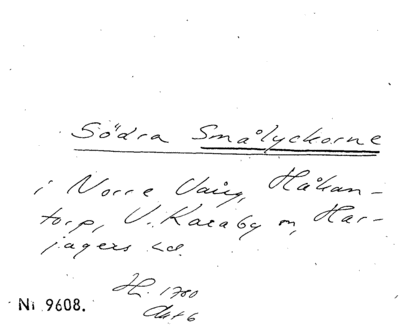 Södra Smålyckorne
i Norre Vång, Håkan-
torp, V. Karaby sn, Har-
jagers hd.
H. 1780
Akt 6
Nr 9608.